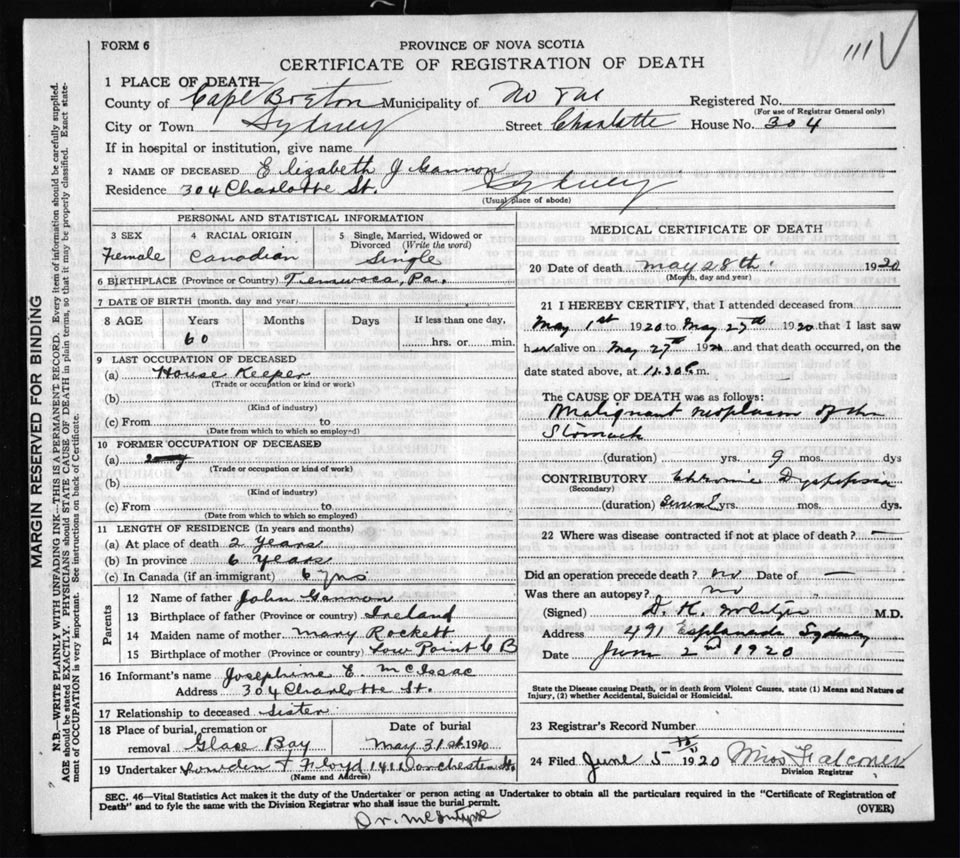 FORM 6
PROVINCE OF NOVA SCOTIA
CERTIFICATE OF REGISTRATION OF DEATH
111 V
1 PLACE OF DEATH—
County of Cape Breton Municipality of Registered No.
(For use of Registrar General only)
City or Town Sydney Street Charlotte House No. 304
If in hospital or institution, give name
2 NAME OF DECEASED Elizabeth J Gannon
Residence 304 Charlotte St. Sydney
(Usual place of abode)
PERSONAL AND STATISTICAL INFORMATION
3 SEX 4 RACIAL ORIGIN 5 Single, Married, Widowed or Divorced (Write the word)
Female Canadian Single
6 BIRTHPLACE (Province or Country) Pa.
7 DATE OF BIRTH (month, day and year)
8 AGE Years Months Days If less than one day,
60 hrs. or min.
9 LAST OCCUPATION OF DECEASED
(a) House Keeper
(Trade or occupation or kind or work)
(b)
(Kind of industry)
(c) From to
(Date from which to which so employed)
10 FORMER OCCUPATION OF DECEASED
(a)
(Trade or occupation or kind of work)
(b)
(Kind of industry)
(c) From to
(Date from which to which so employed)
11 LENGTH OF RESIDENCE (In years and months)
(a) At place of death 2 Years
(b) In province 6 Years
(c) In Canada (if an immigrant) 6 yrs
Parents
12 Name of father John Gannon
13 Birthplace of father (Province or country) Ireland
14 Maiden name of mother Mary Rockett
15 Birthplace of mother (Province or country) Low Point C B
16 Informant's name Josephine E McIsaac
Address 304 Charlotte St.
17 Relationship to deceased Sister
18 Place of burial, cremation or Date of burial
removal Glace Bay May 31st 1920
19 Undertaker Lowden & Floyd 141 Dorchester St.
(Name and Address)
MEDICAL CERTIFICATE OF DEATH
20 Date of death May 28th 1920
(Month, day and year)
21 I HEREBY CERTIFY, that I attended deceased from
May 1st 1920 to May 27th 1920 that I last saw
her alive on May 27th 1920 and that death occurred, on the
date stated above, at 11.30 P.m.
The CAUSE OF DEATH was as follows:
Malignant neoplasm of the
Stomach
(duration) yrs. 9 mos. dys
CONTRIBUTORY Chronic Dyspepsia
(Secondary)
(duration) Several yrs. mos. dys.
22 Where was disease contracted if not at place of death? —
Did an operation precede death? no Date of —
Was there an autopsy? no
(Signed) D. K. McIntyre M.D.
Address 491 Esplanade Sydney
Date June 2nd 1920
State the Disease causing Death, or in death from Violent Causes, state (1) Means and Nature of
Injury, (2) whether Accidental, Suicidal or Homicidal.
23 Registrar's Record Number
24 Filed June 5th 1920 Miss Falconer
Division Registrar
SEC. 46—Vital Statistics Act makes it the duty of the Undertaker or person acting as Undertaker to obtain all the particulars required in the "Certificate of Registration of
Death" and to fyle the same with the Division Registrar who shall issue the burial permit. (OVER)
Dr. McIntyre
MARGIN RESERVED FOR BINDING
N.B.—WRITE PLAINLY WITH UNFADING INK—THIS IS A PERMANENT RECORD. Every item of information should be carefully supplied.
AGE should be stated EXACTLY. PHYSICIANS should STATE CAUSE OF DEATH in plain terms, so that it may be properly classified. Exact state-
ment of OCCUPATION is very important. See instructions on back of Certificate.